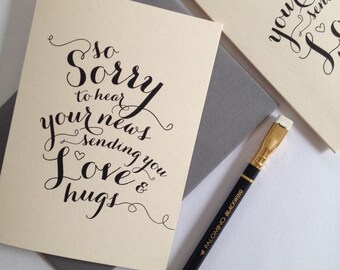 so
Sorry
to hear
your news
sending you
Love &
hugs
you
sending
Lo
hu
PALOMINO BLACKWING